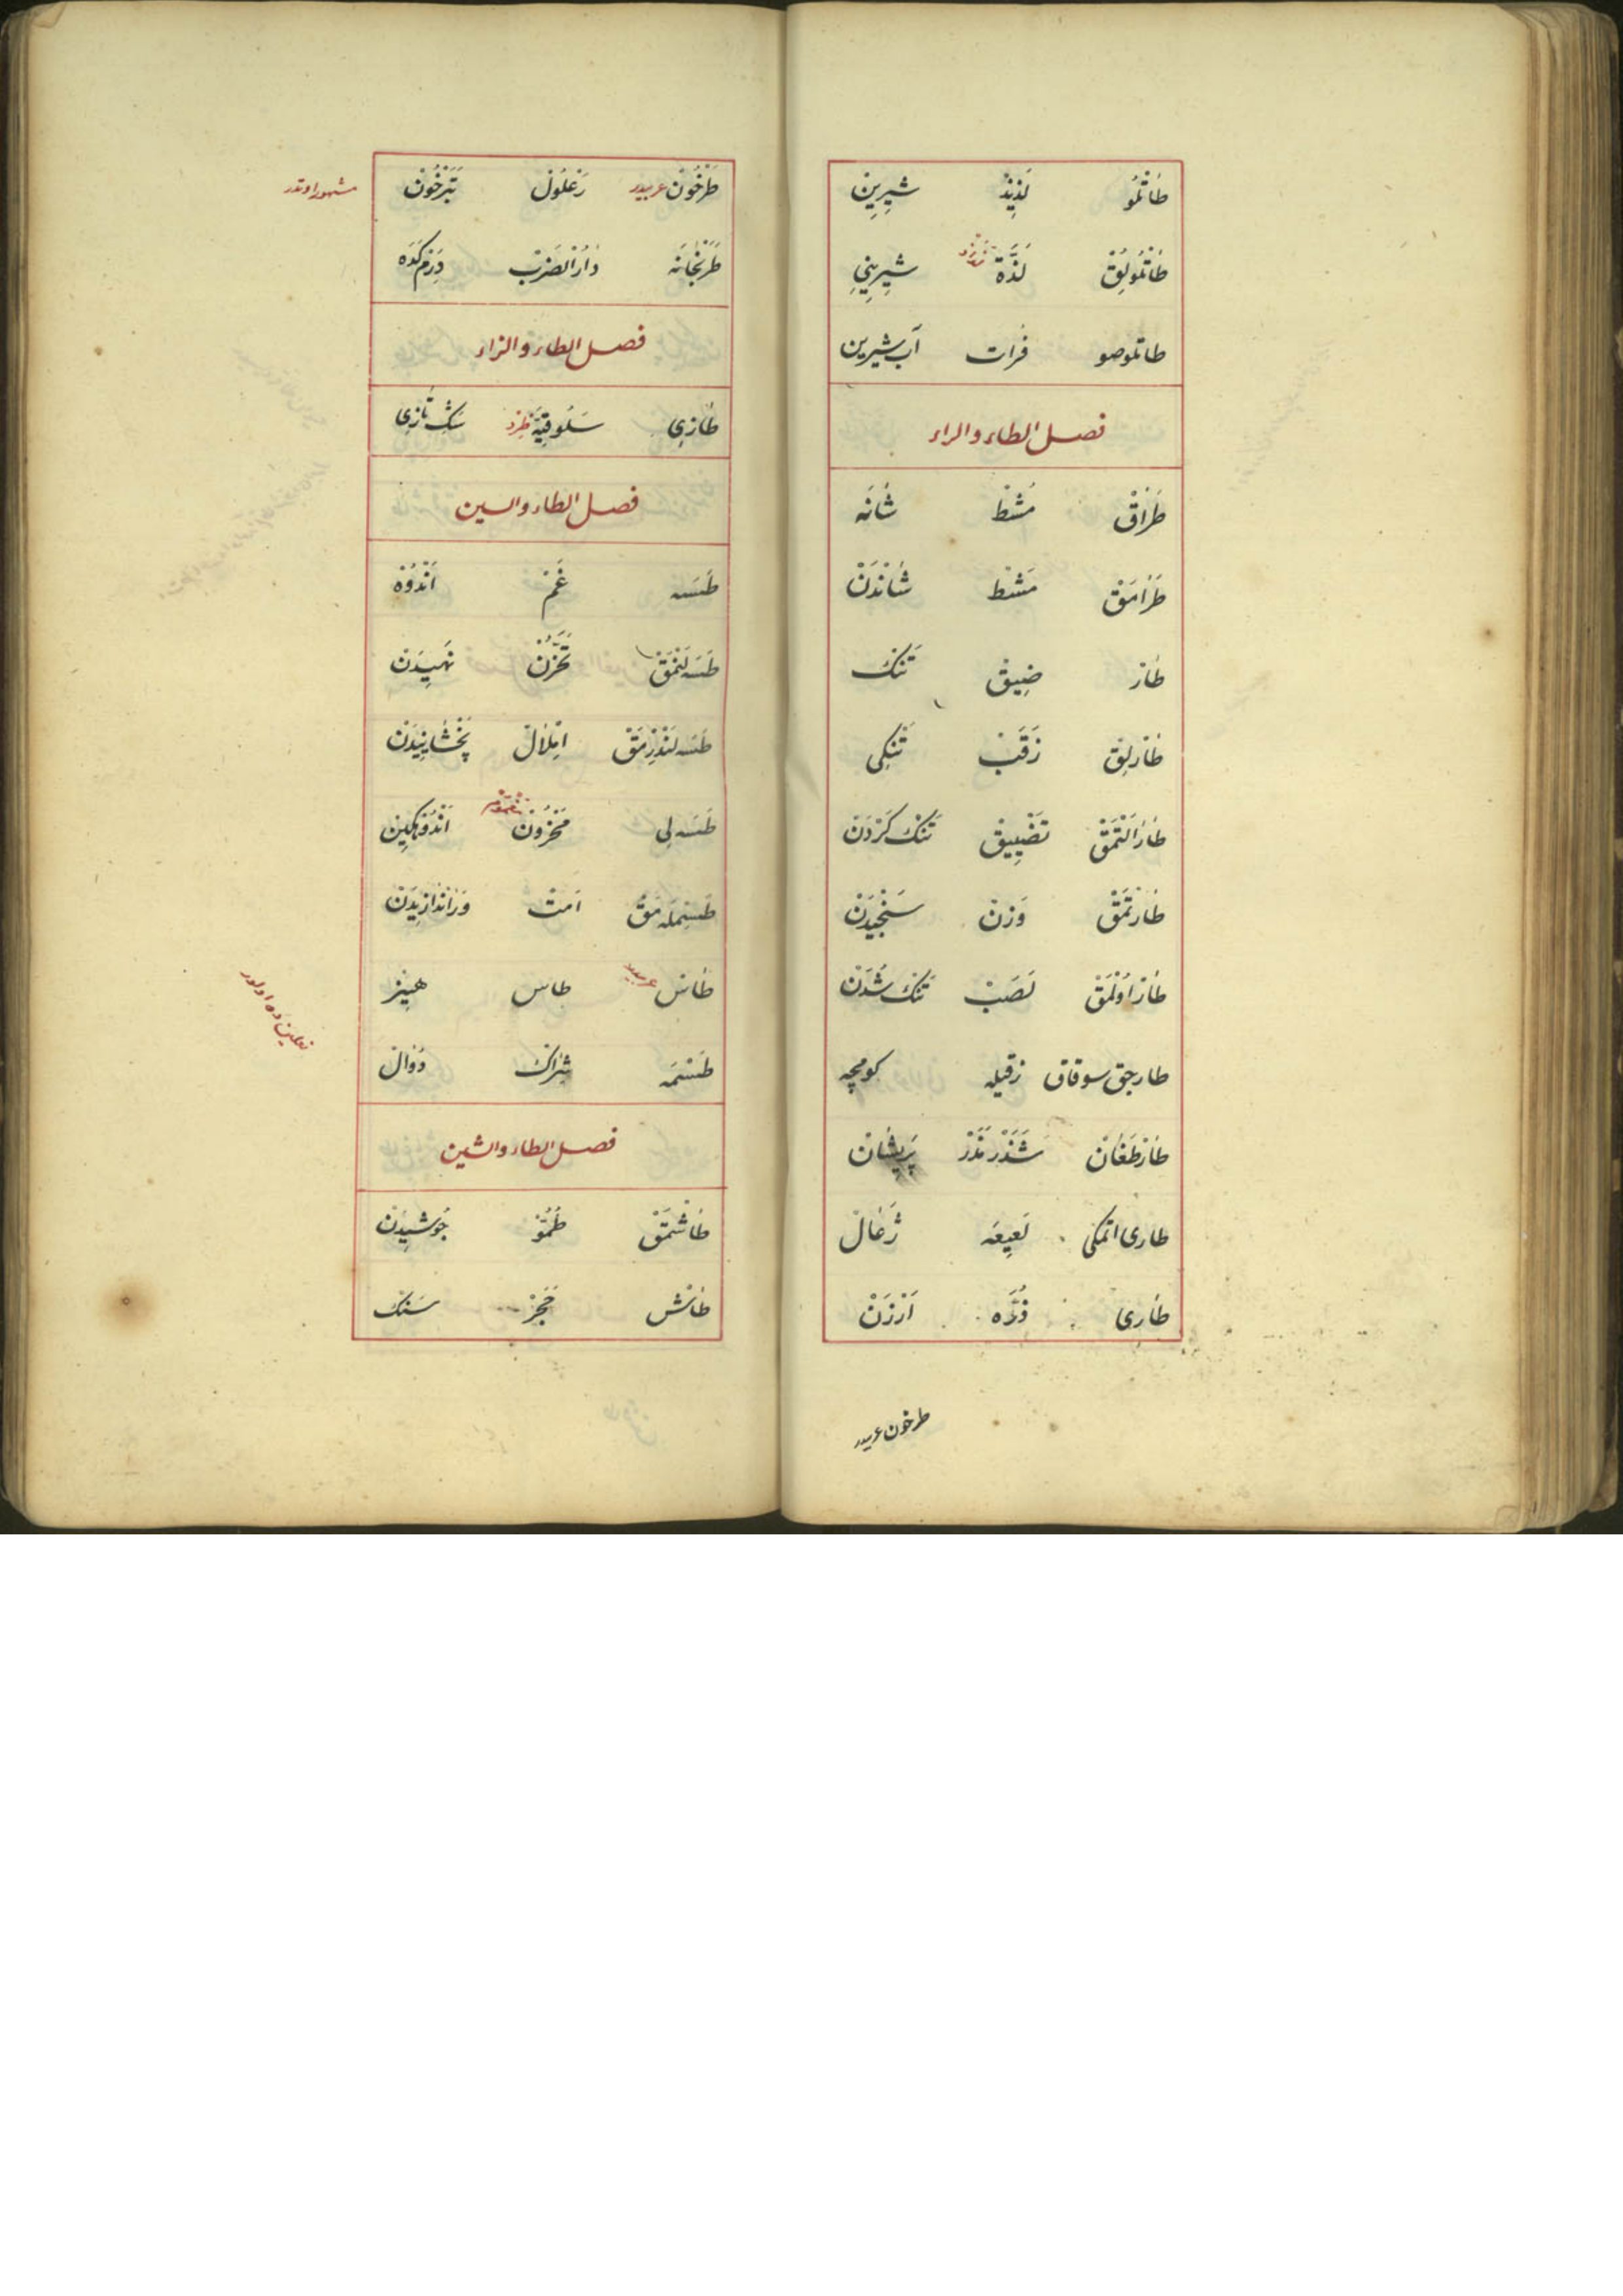 طَاتْلُو لَذِيذْ شِيرِينْ
طَاتْلُولِقْ لَذَّة شِيرِينِي
طاتلوصو فرات آب شیرین
فصل الطاء والراء
طَرَاقْ مُشْطْ شَانَه
طَرَامَقْ مَشْط شَانْدَنْ
طَار ضِيقْ تَنك
طَارْلِقْ زَقَبْ تَنكِی
طَارَلْتْمَقْ تَضْيِيقْ تَنك كَرْدَنْ
طَارتْمَقْ وَزنْ سَنْجِيدَنْ
طَار اُولْمَقْ لَصَبْ تَنك شُدَنْ
طارجق سوقاق زقیله کومچه
طَارْطَغَانْ شَذَرْمَذَرْ پَرِيشَانْ
طاری اتمکی لَعِيعَه ژَغَالْ
طَارِی ذُرَه اَرْزَنْ
طرخون عربیدر
طَرْخُونْ عربیدر زَغْلُولْ تَبَرْخُونْ مشهور اوتدر
طَرَبْخَانَه دَارُ الضَرْبْ دِرَم كَدَه
فصل الطاء والزاء
طَازِی سَلُوقِيَّة سَك تَازِی
فصل الطاء والسين
طَسَه غَمْ اَنْدُوْه
طَسَه لَنْمَقْ تَحَزُّنْ نهيدن
طَسَه لَنْدِرْمَقْ اِمْلَالْ پَخْشَانِيدَنْ
طَسَه لی مَحْزُونْ مغموم اَنْدُوهكِينْ
طَسِمْلَه مَقْ اَمْتْ وَرَانْدَازِيدَنْ
طَاسْ عربیدر طاس هِيِزْ
طَسْمَه شِرَاكْ دَوَالْ نعلینده اولور
فصل الطاء والشين
طَاشْمَقْ طُمُوّ جُوشِيدَنْ
طَاشْ حَجَرْ سَنك